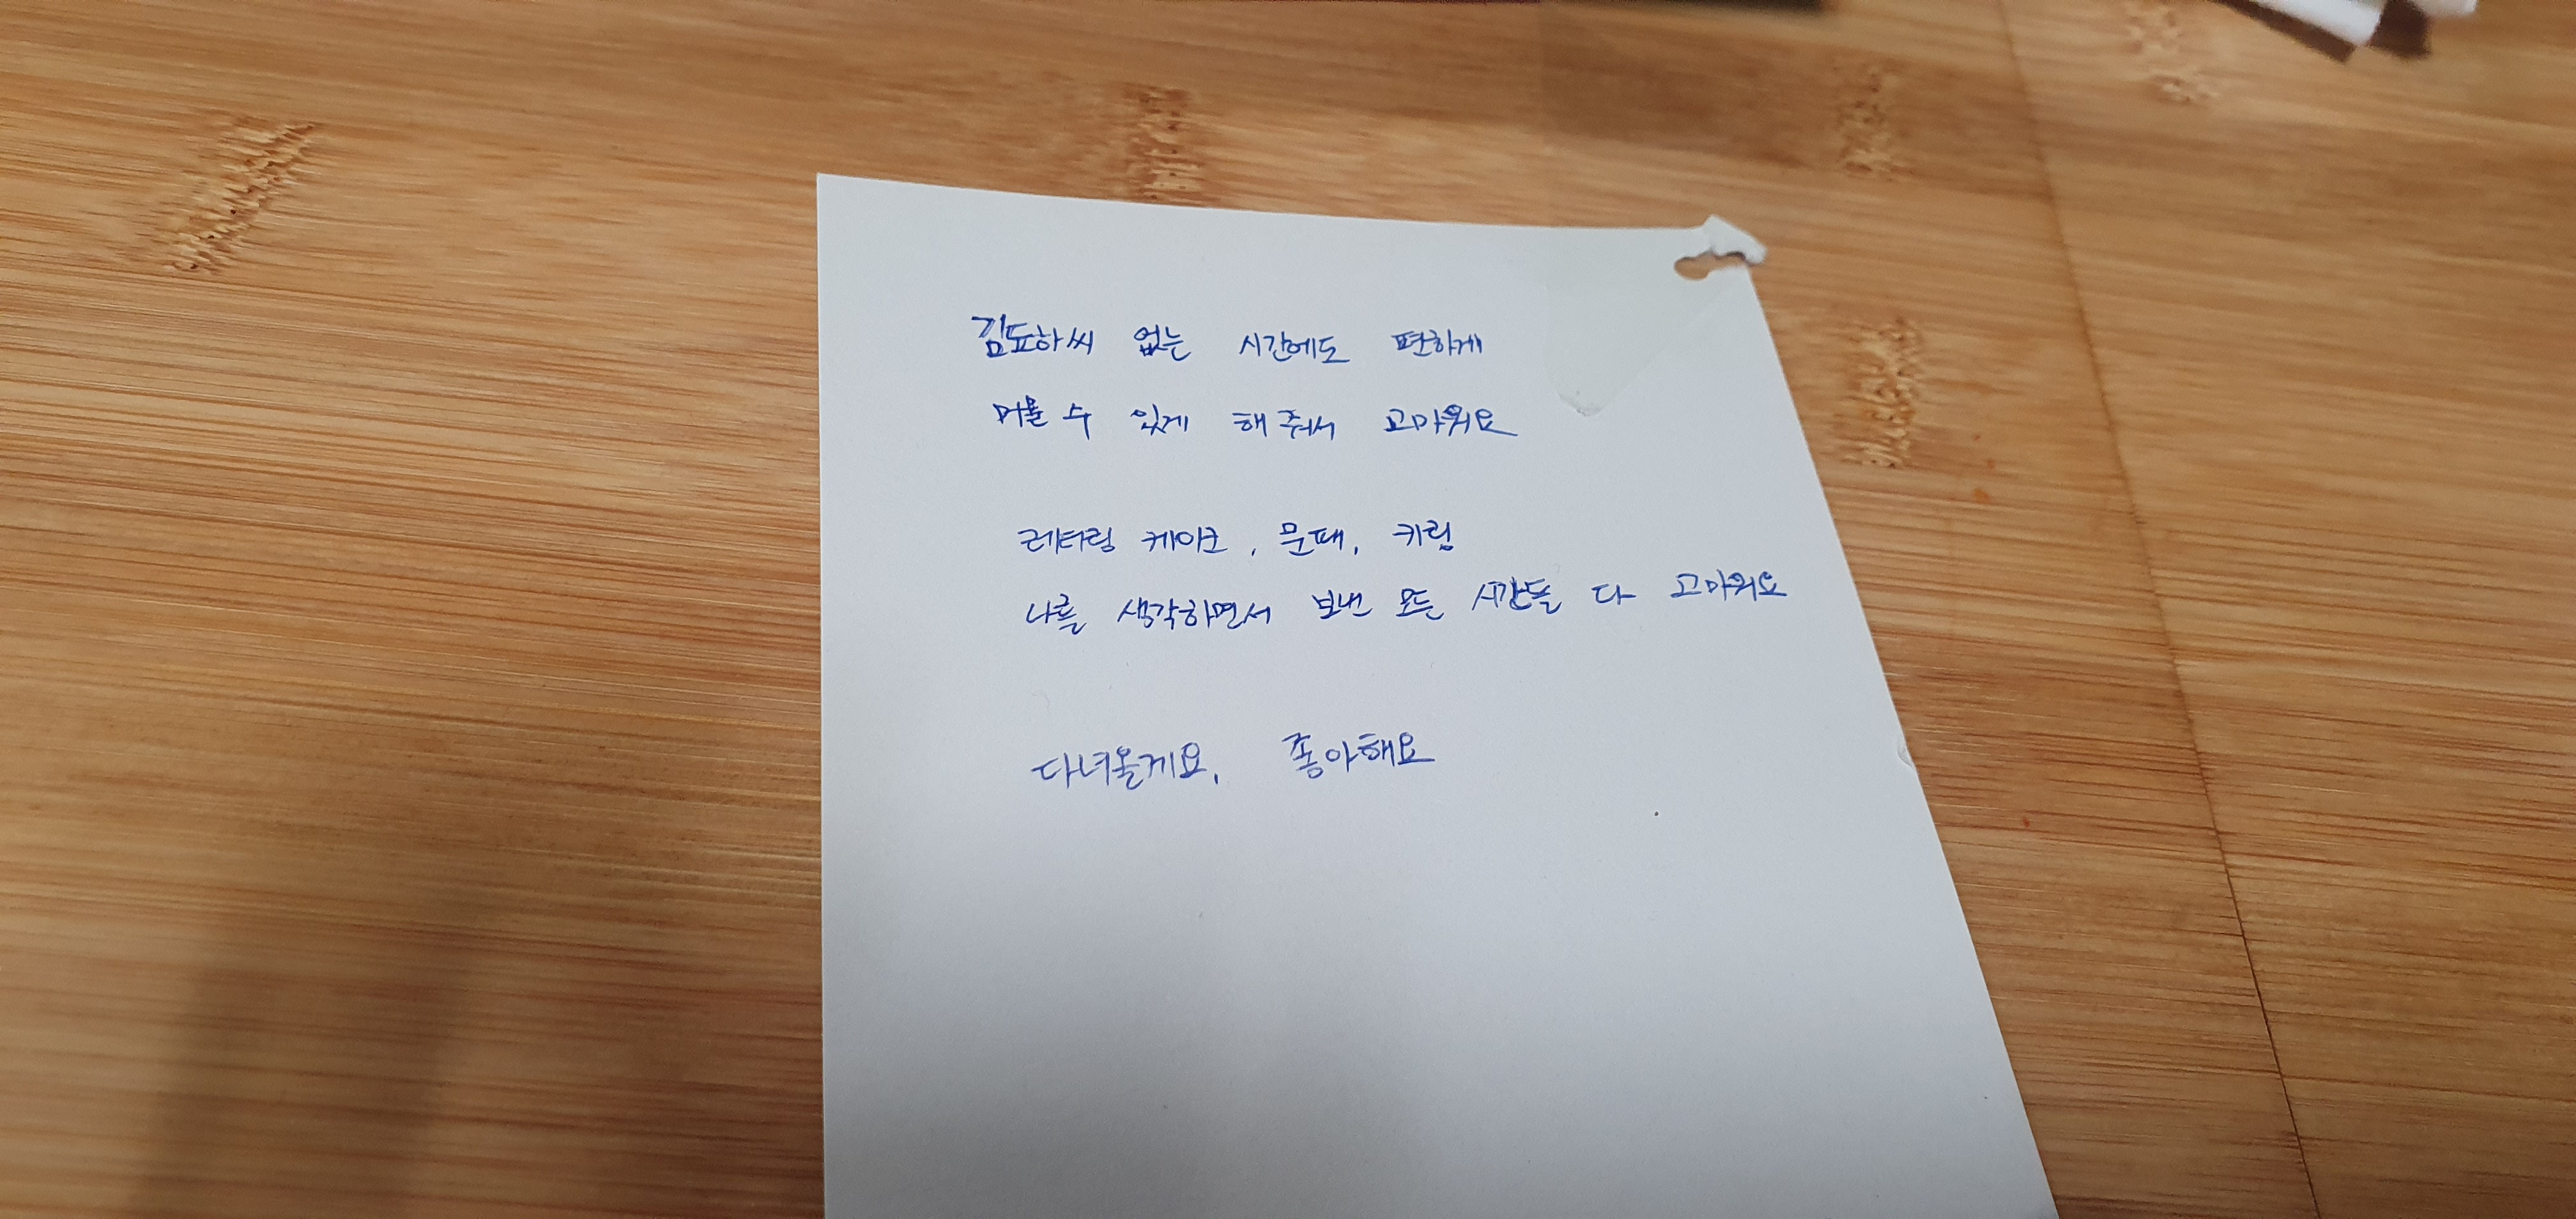 김됴하씨 없는 시간에도 편하게
머물 수 있게 해줘서 고마워요
레터링 케이크, 문패, 키링
나를 생각하면서 보낸 모든 시간들 다 고마워요
다녀올게요, 좋아해요